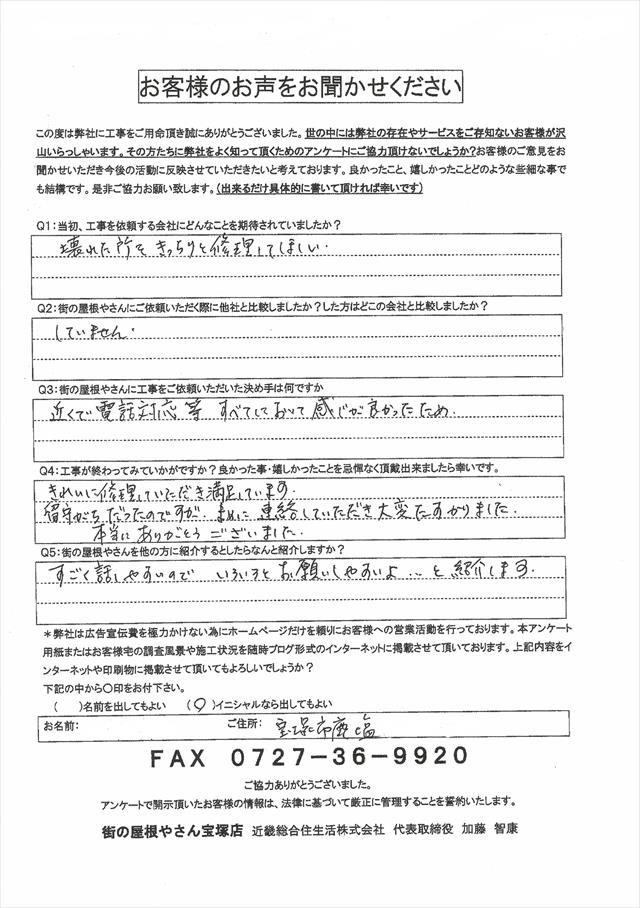 お客様のお声をお聞かせください
この度は弊社に工事をご用命頂き誠にありがとうございました。世の中には弊社の存在やサービスをご存知ないお客様が沢
山いらっしゃいます。その方たちに弊社をよく知って頂くためのアンケートにご協力頂けないでしょうか?お客様のご意見をお
聞かせいただき今後の活動に反映させていただきたいと考えております。良かったこと、嬉しかったことどのような些細な事で
も結構です。是非ご協力お願い致します。(出来るだけ具体的に書いて頂ければ幸いです)
Q1:当初、工事を依頼する会社にどんなことを期待されていましたか?
壊れた所をきっちりと修理してほしい.
Q2:街の屋根やさんにご依頼いただく際に他社と比較しましたか?した方はどこの会社と比較しましたか?
していません.
Q3:街の屋根やさんに工事をご依頼いただいた決め手は何ですか
近くで電話対応等 すべてしおいて感じが良かったため.
Q4:工事が終わってみていかがですか?良かった事・嬉しかったことを忌憚なく頂戴出来ましたら幸いです。
きれいに修理していただき満足しています.
留守がちだったのですが、まめに連絡していただき大変たすかりました.
本当にありがとうございました.
Q5:街の屋根やさんを他の方に紹介するとしたらなんと紹介しますか?
すごく話しやすいので いろいろとお願いしやすいよ...と紹介します.
*弊社は広告宣伝費を極力かけない為にホームページだけを頼りにお客様への営業活動を行っております。本アンケート
用紙またはお客様宅の調査風景や施工状況を随時ブログ形式のインターネットに掲載させて頂いております。上記内容をイ
ンターネットや印刷物に掲載させて頂いてもよろしいでしょうか?
下記の中から〇印をお付下さい。
( )名前を出してもよい (〇)イニシャルなら出してもよい
お名前: ご住所: 宝塚市鹿塩
FAX 0727-36-9920
ご協力ありがとうございました。
アンケートで開示頂いたお客様の情報は、法律に基づいて厳正に管理することを誓約いたします。
街の屋根やさん宝塚店 近畿総合住生活株式会社 代表取締役 加藤 智康